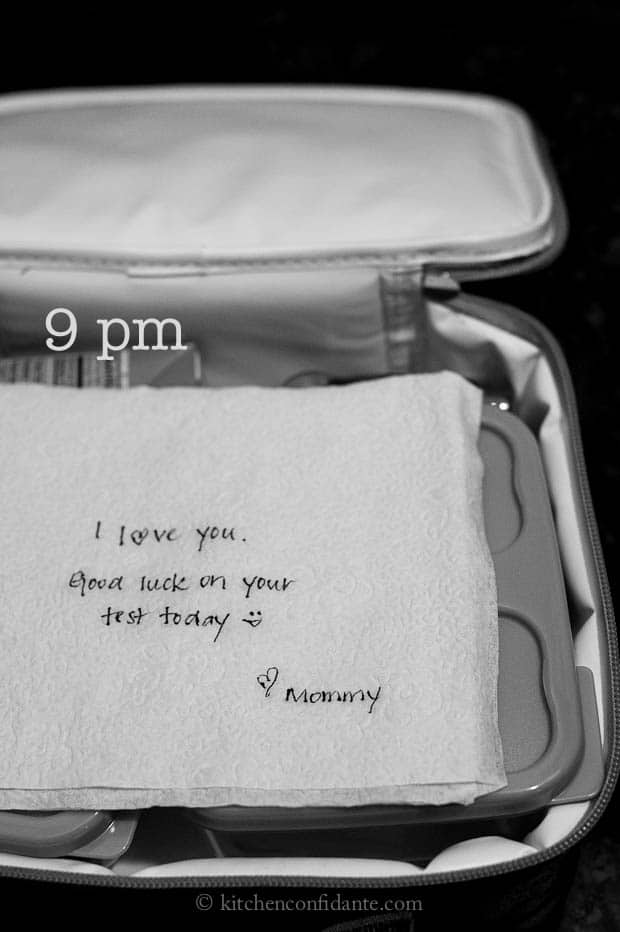 9 pm
I love you.
Good luck on your
test today
Mommy
© kitchenconfidante.com